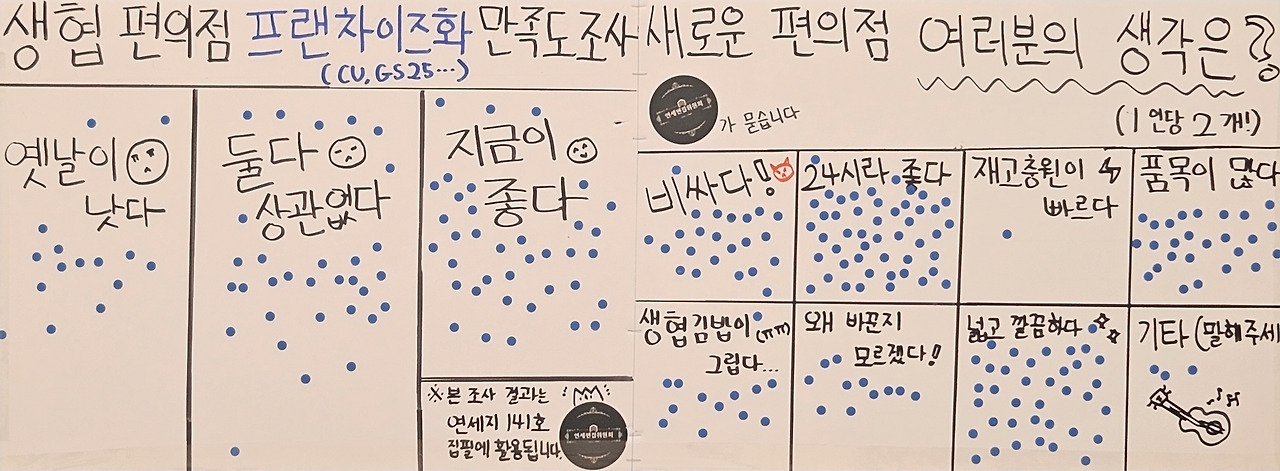 생협 편의점 프랜차이즈화 만족도조사
(CU, GS25…)
옛날이
낫다
둘다
상관없다
지금이
좋다
※본 조사 결과는
연세지 141호
집필에 활용됩니다.
연세편집위원회
새로운 편의점 여러분의 생각은?
연세편집위원회
가 묻습니다
(1인당 2개!)
비싸다!
24시라 좋다
재고충원이
빠르다
품목이 많다
생협김밥이 (ㅠㅠ)
그립다...
왜 바뀐지
모르겠다!
넓고 깔끔하다
기타 (말해주세